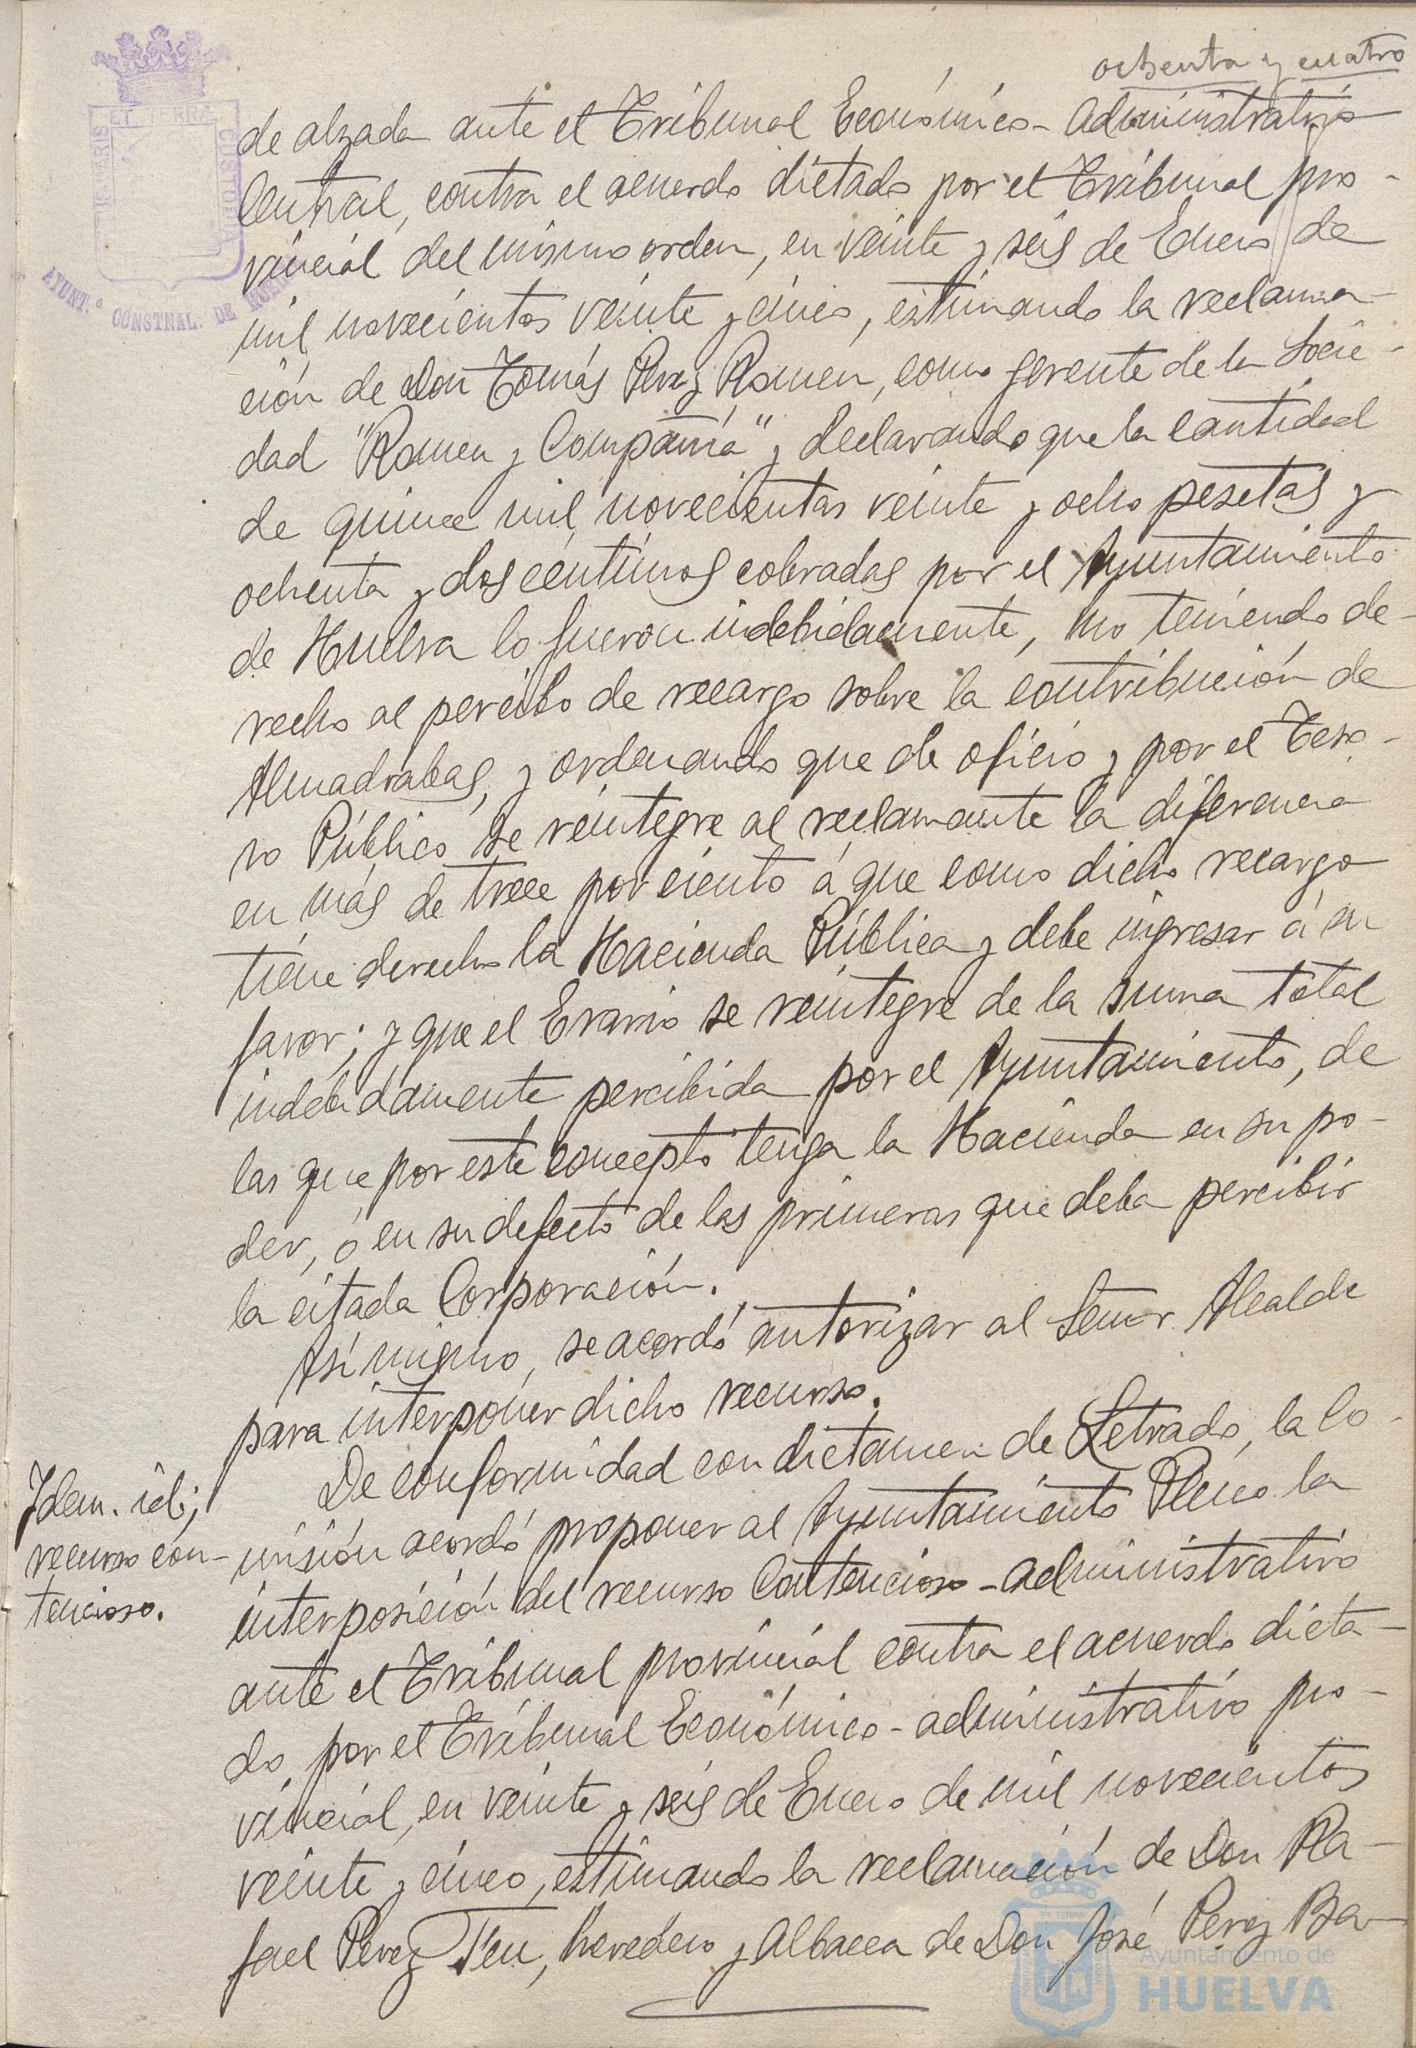 ochenta y cuatro
PORTUS MARIS ET TERRÆ CUSTODIA
AYUNT.º CONSTNAL. DE HUELVA
de alzada ante el Tribunal Económico-Administrativo
Central, contra el acuerdo dictado por el Tribunal pro-
vincial del mismo orden, en veinte y seis de Enero de
mil novecientos veinte y cinco, estimando la reclama-
ción de Don Tomás Perez Romeu, como gerente de la Socie-
dad "Romeu y Compañía" y declarando que la cantidad
de quince mil novecientas veinte y ocho pesetas y
ochenta y dos céntimos cobradas por el Ayuntamiento
de Huelva lo fueron indebidamente, no teniendo de-
recho al percibo de recargo sobre la contribución de
Almadrabas, y ordenando que de oficio y por el Teso-
ro Público se reintegre al reclamante la diferencia
en más de trece por ciento á que como dicho recargo
tiene derecho la Hacienda Pública y debe ingresar á su
favor; y que el Erario se reintegre de la suma total
indebidamente percibida por el Ayuntamiento, de
las que por este concepto tenga la Hacienda en su po-
der, ó en su defecto de las primeras que deba percibir
la citada Corporación.
Asímismo, se acordó autorizar al Señor Alcalde
para interponer dicho recurso.
Idem. id.;
recurso con-
tencioso.
De conformidad con dictamen de Letrado, la Co-
misión acordó proponer al Ayuntamiento Pleno la
interposición del recurso Contencioso-administrativo
ante el Tribunal provincial contra el acuerdo dicta-
do, por el Tribunal Económico-administrativo pro-
vincial, en veinte y seis de Enero de mil novecientos
veinte y cinco, estimando la reclamación de Don Ra-
fael Perez Feu, heredero y Albacea de Don José Perez Ba-
Ayuntamiento de
HUELVA